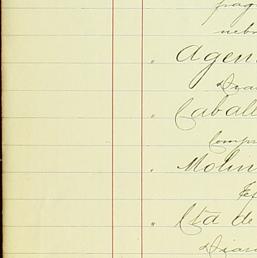 pag
nebr
" Agen
Dia
" Caball
Comp
" Molin
" Cta de
Diar